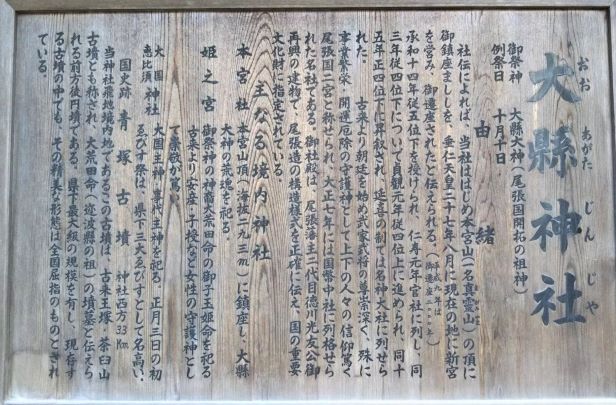 大縣神社
おおあがたじんじゃ
御祭神 大縣大神（尾張国開拓の祖神）
例祭日 十月十日
由緒
社伝によれば、当社ははじめ本宮山（名真霊山）の頂に
御鎮座ましましを、垂仁天皇二十七年八月に現在の地に新宮
を営み、御遷座されたと伝えられる。（平成九年は御遷座二〇〇〇年）
承和十四年従五位下を授けられ、仁寿元年官社に列し、同
三年従四位下について貞観元年従四位上に進められ、同十
五年正四位下に昇叙され、延喜の制では名神大社に列せら
れた。古来より朝廷を始め武家武将の尊崇深く、殊に
事業繁栄・開運厄除の守護神として上下の人々の信仰篤く
尾張国二宮と称せられ、大正七年には国幣中社に列格せら
れた名社である。御社殿は、尾張藩主二代目徳川光友公御
再興の建物で、尾張造の構造様式を正確に伝え、国の重要
文化財に指定されている。
主なる境内神社
本宮社 本宮山頂（海抜二九三m）に鎮座し、大縣
大神の荒魂を祀る。
姫之宮 御祭神の神裔大荒田命の御子玉姫命を祀る
古来より安産・子授など女性の守護神とし
て崇敬が篤い。
大国恵比須神社 大国主神、事代主神を祀る。正月三日の初
ゑびす祭は、県下三大ゑびすとして名高い。
国史跡 青塚古墳 神社西方3.3Km
当神社飛地境内地であるこの古墳は、古来王塚、茶臼山
古墳とも称され、大荒田命（邇波縣の祖）の墳墓と伝えら
れる前方後円墳である。県下最大級の規模を有し、現存す
る古墳の中でも、その精美な形態は全国屈指のものとされ
ている